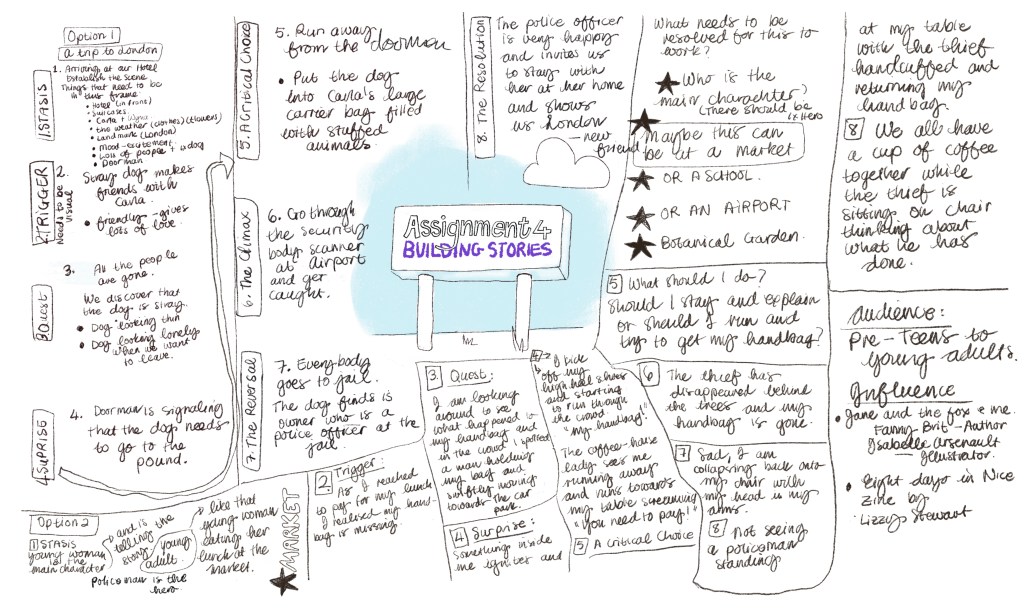 Option 1
a trip to London
1. STASIS
1. Arriving at our Hotel
Establish the scene
Things that need to be
in this frame
• Hotel (in front)
• Suitcases
• Carla +
• the weather (clothes) (flowers)
• Landmark (London)
• mood - excitement
• Lots of people + dog
• Doorman
2. TRIGGER
Needs to be
visual
2. Stray dog makes
friends with
Carla.
• friendly - gives
lots of love.
3. Quest
3. All the people
are gone.
We discover that
the dog is stray.
• Dog looking thin
• Dog looking lonely
when we want
to leave.
4 SUPRISE
4. Doorman is signaling
that the dog needs
to go to the
pound.
5. A Critical Choice
5. Run away
from the doorman
• Put the dog
into Carla's large
carrier bag filled
with stuffed
animals.
6. The Climax
6. Go through
the security
body scanner
at airport
and get
caught.
7. The Reversal
7. Everybody
goes to jail.
The dog finds is
owner who is a
police officer at the
jail.
8. The Resolution
The police officer
is very happy
and invites us
to stay with
her at her home
and shows
us London
- new
friend
Assignment 4
BUILDING STORIES
What needs to be
resolved for this to
work?
★ Who is the
main charachter?
(There should be
1x Hero
★ Maybe this can
be at a market
★ OR A SCHOOL.
★ OR AN AIRPORT
★ Botanical Garden.
Option 2
1 STASIS
young woman
is the
main character
and is
telling the
story
young
adult.
Policeman is the
hero
• like that
young woman
eating her
lunch at the
market.
★ MARKET
2. Trigger:
As I reached
to pay for my lunch
I realised my hand-
bag is missing.
3 Quest:
I am looking
around to see
what happened to
my handbag and
in the crowd I spotted
a man holding
my bag and
swiftly moving
towards the car
park.
4 Surprise:
Something inside
me ignites and
4 I kick
off my
high heel shoes
and starting
to run through
the crowd.
"my handbag!"
The coffee-house
lady sees me
running away
and runs towards
my table screaming
"you need to pay!"
5 A Critical Choice
5 What should I do?
Should I stay and explain
or should I run and
try to get my handbag?
6 The thief has
disappeared behind
the trees and my
handbag is gone.
7 Sad, I am
collapsing back onto
my chair with
my head in my
arms.
8 Not seeing
a policeman
standing
at my table
with the thief
handcuffed and
returning my
handbag.
8 We all have
a cup of coffee
together while
the thief is
sitting on chair
thinking about
what he has
done.
Audience:
Pre-Teens to
young adults.
Influence
• Jane and the fox & me.
Fanny Brit - Author
Isabelle Arsenault
Illustrator.
• Eight days in Nice
Zine by
Lizzy Stewart